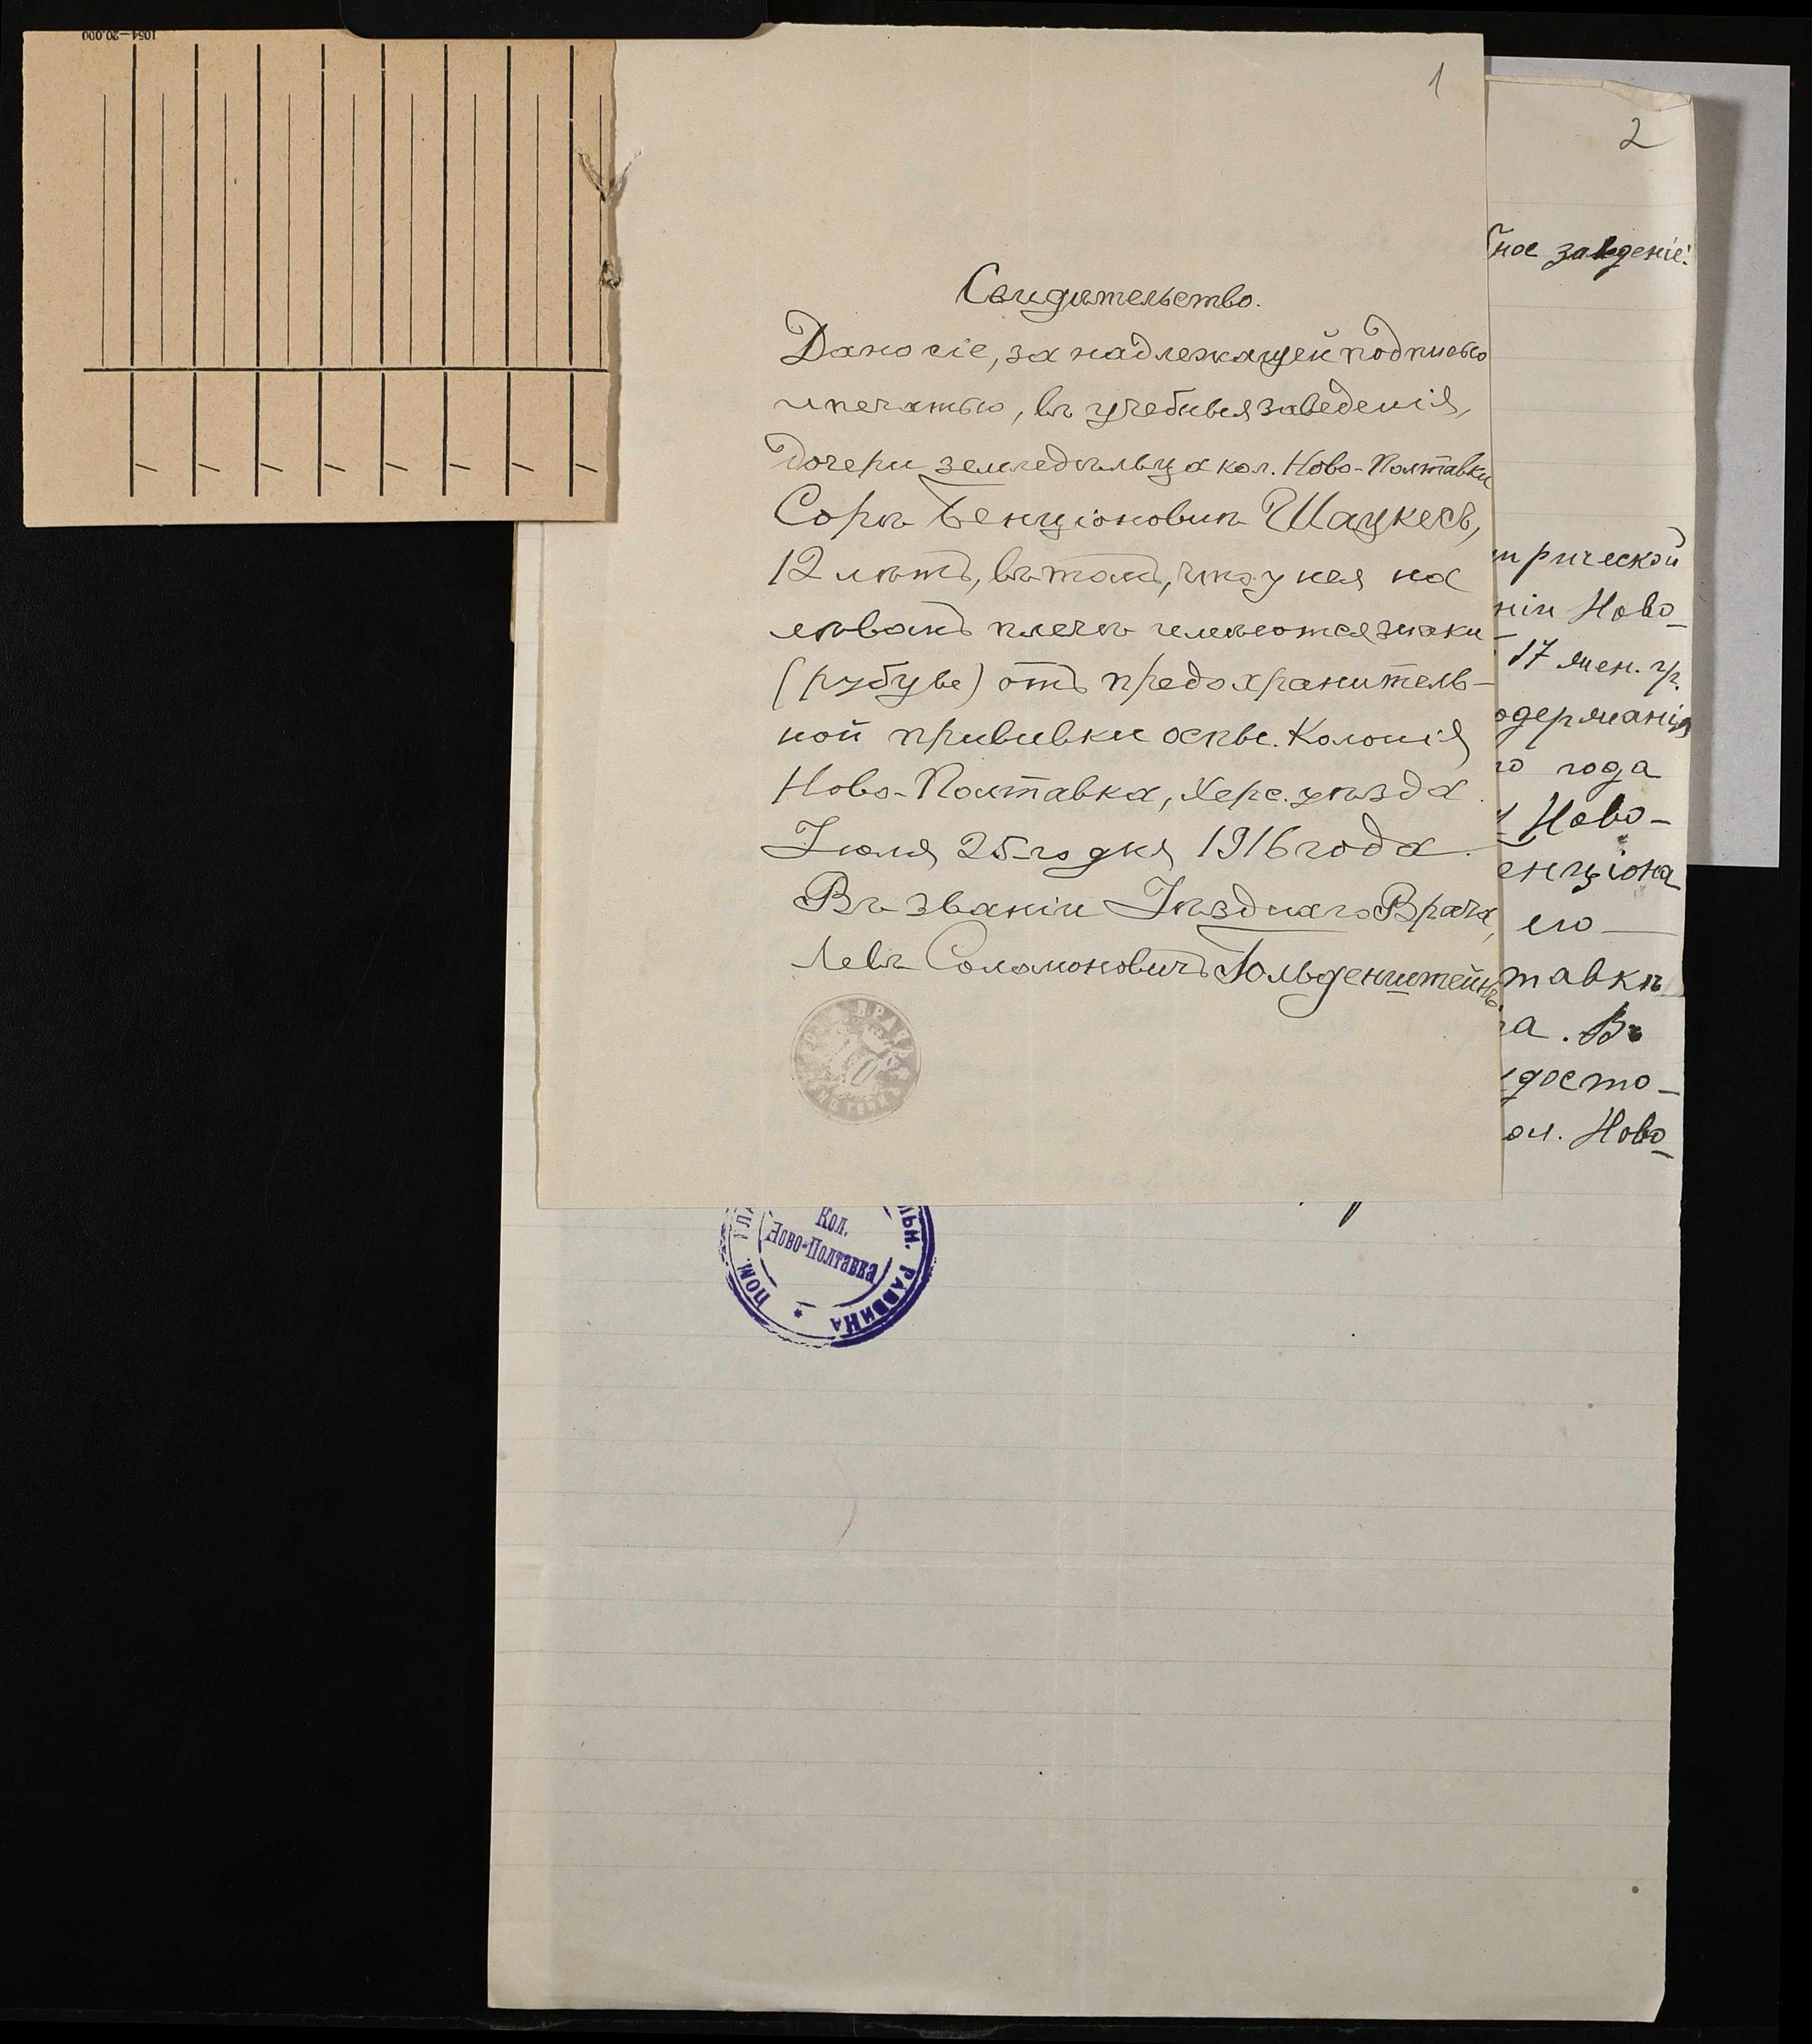 1054—20.000
1
Свидѣтельство.
Дано сіе, за надлежащей подписью
и печатью, въ учебныя заведенія,
дочери земледѣльца кол. Ново-Полтавки
Сорѣ Бенціоновнѣ Шацкесъ,
12 лѣтъ, въ томъ, что у нея на
лѣвомъ плечѣ имѣются знаки
(рубцы) отъ предохранитель-
ной прививки оспы. Колонія
Ново-Полтавка, Херс. уѣзда.
Іюля 25-го дня 1916 года.
Въ званіи Уѣзднаго Врача,
Левъ Соломоновичъ Гольденштейнъ
ВРАЧ
2
ное завденіе.
трической
ніи Ново-
17 жен. гр.
одержанія
го года
Ново-
енціона
его
тавкѣ
а. Въ
досто-
ол. Ново-
Кол.
Ново-Полтавка
ПОМ.
ЛЬН. РАВВИНА